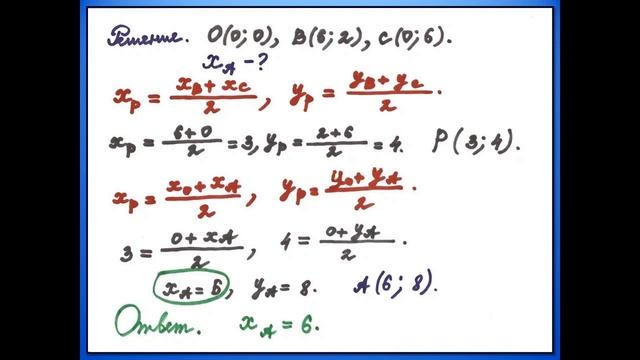 Решение. O(0;0), B(6;2), C(0;6).
x_A - ?
x_P = (x_B + x_C)/2, y_P = (y_B + y_C)/2.
x_P = (6+0)/2 = 3, y_P = (2+6)/2 = 4. P(3;4).
x_P = (x_O + x_A)/2, y_P = (y_O + y_A)/2.
3 = (0 + x_A)/2, 4 = (0 + y_A)/2.
x_A = 6, y_A = 8. A(6; 8).
Ответ. x_A = 6.